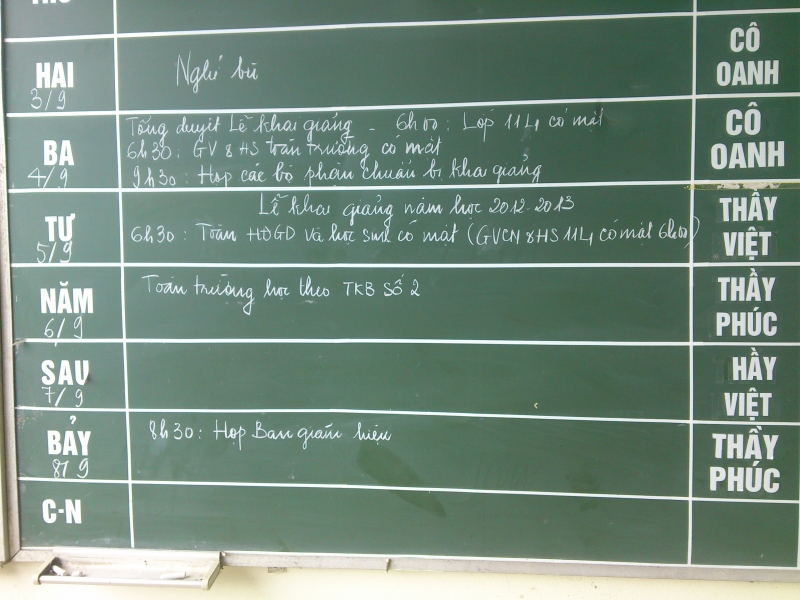 HAI
3/9
Nghỉ bù
CÔ OANH
BA
4/9
Tổng duyệt Lễ khai giảng - 6h00: Lớp 11A1 có mặt
6h30: GV & HS toàn trường có mặt
9h30: Họp các bộ phận chuẩn bị khai giảng
CÔ OANH
TƯ
5/9
Lễ khai giảng năm học 2012-2013
6h30: Toàn HĐGD và học sinh có mặt (GVCN & HS 11A1 có mặt 6h00)
THẦY VIỆT
NĂM
6/9
Toàn trường học theo TKB Số 2
THẦY PHÚC
SAU
7/9
HẦY VIỆT
BẢY
8/9
8h30: Họp Ban giám hiệu
THẦY PHÚC
C-N